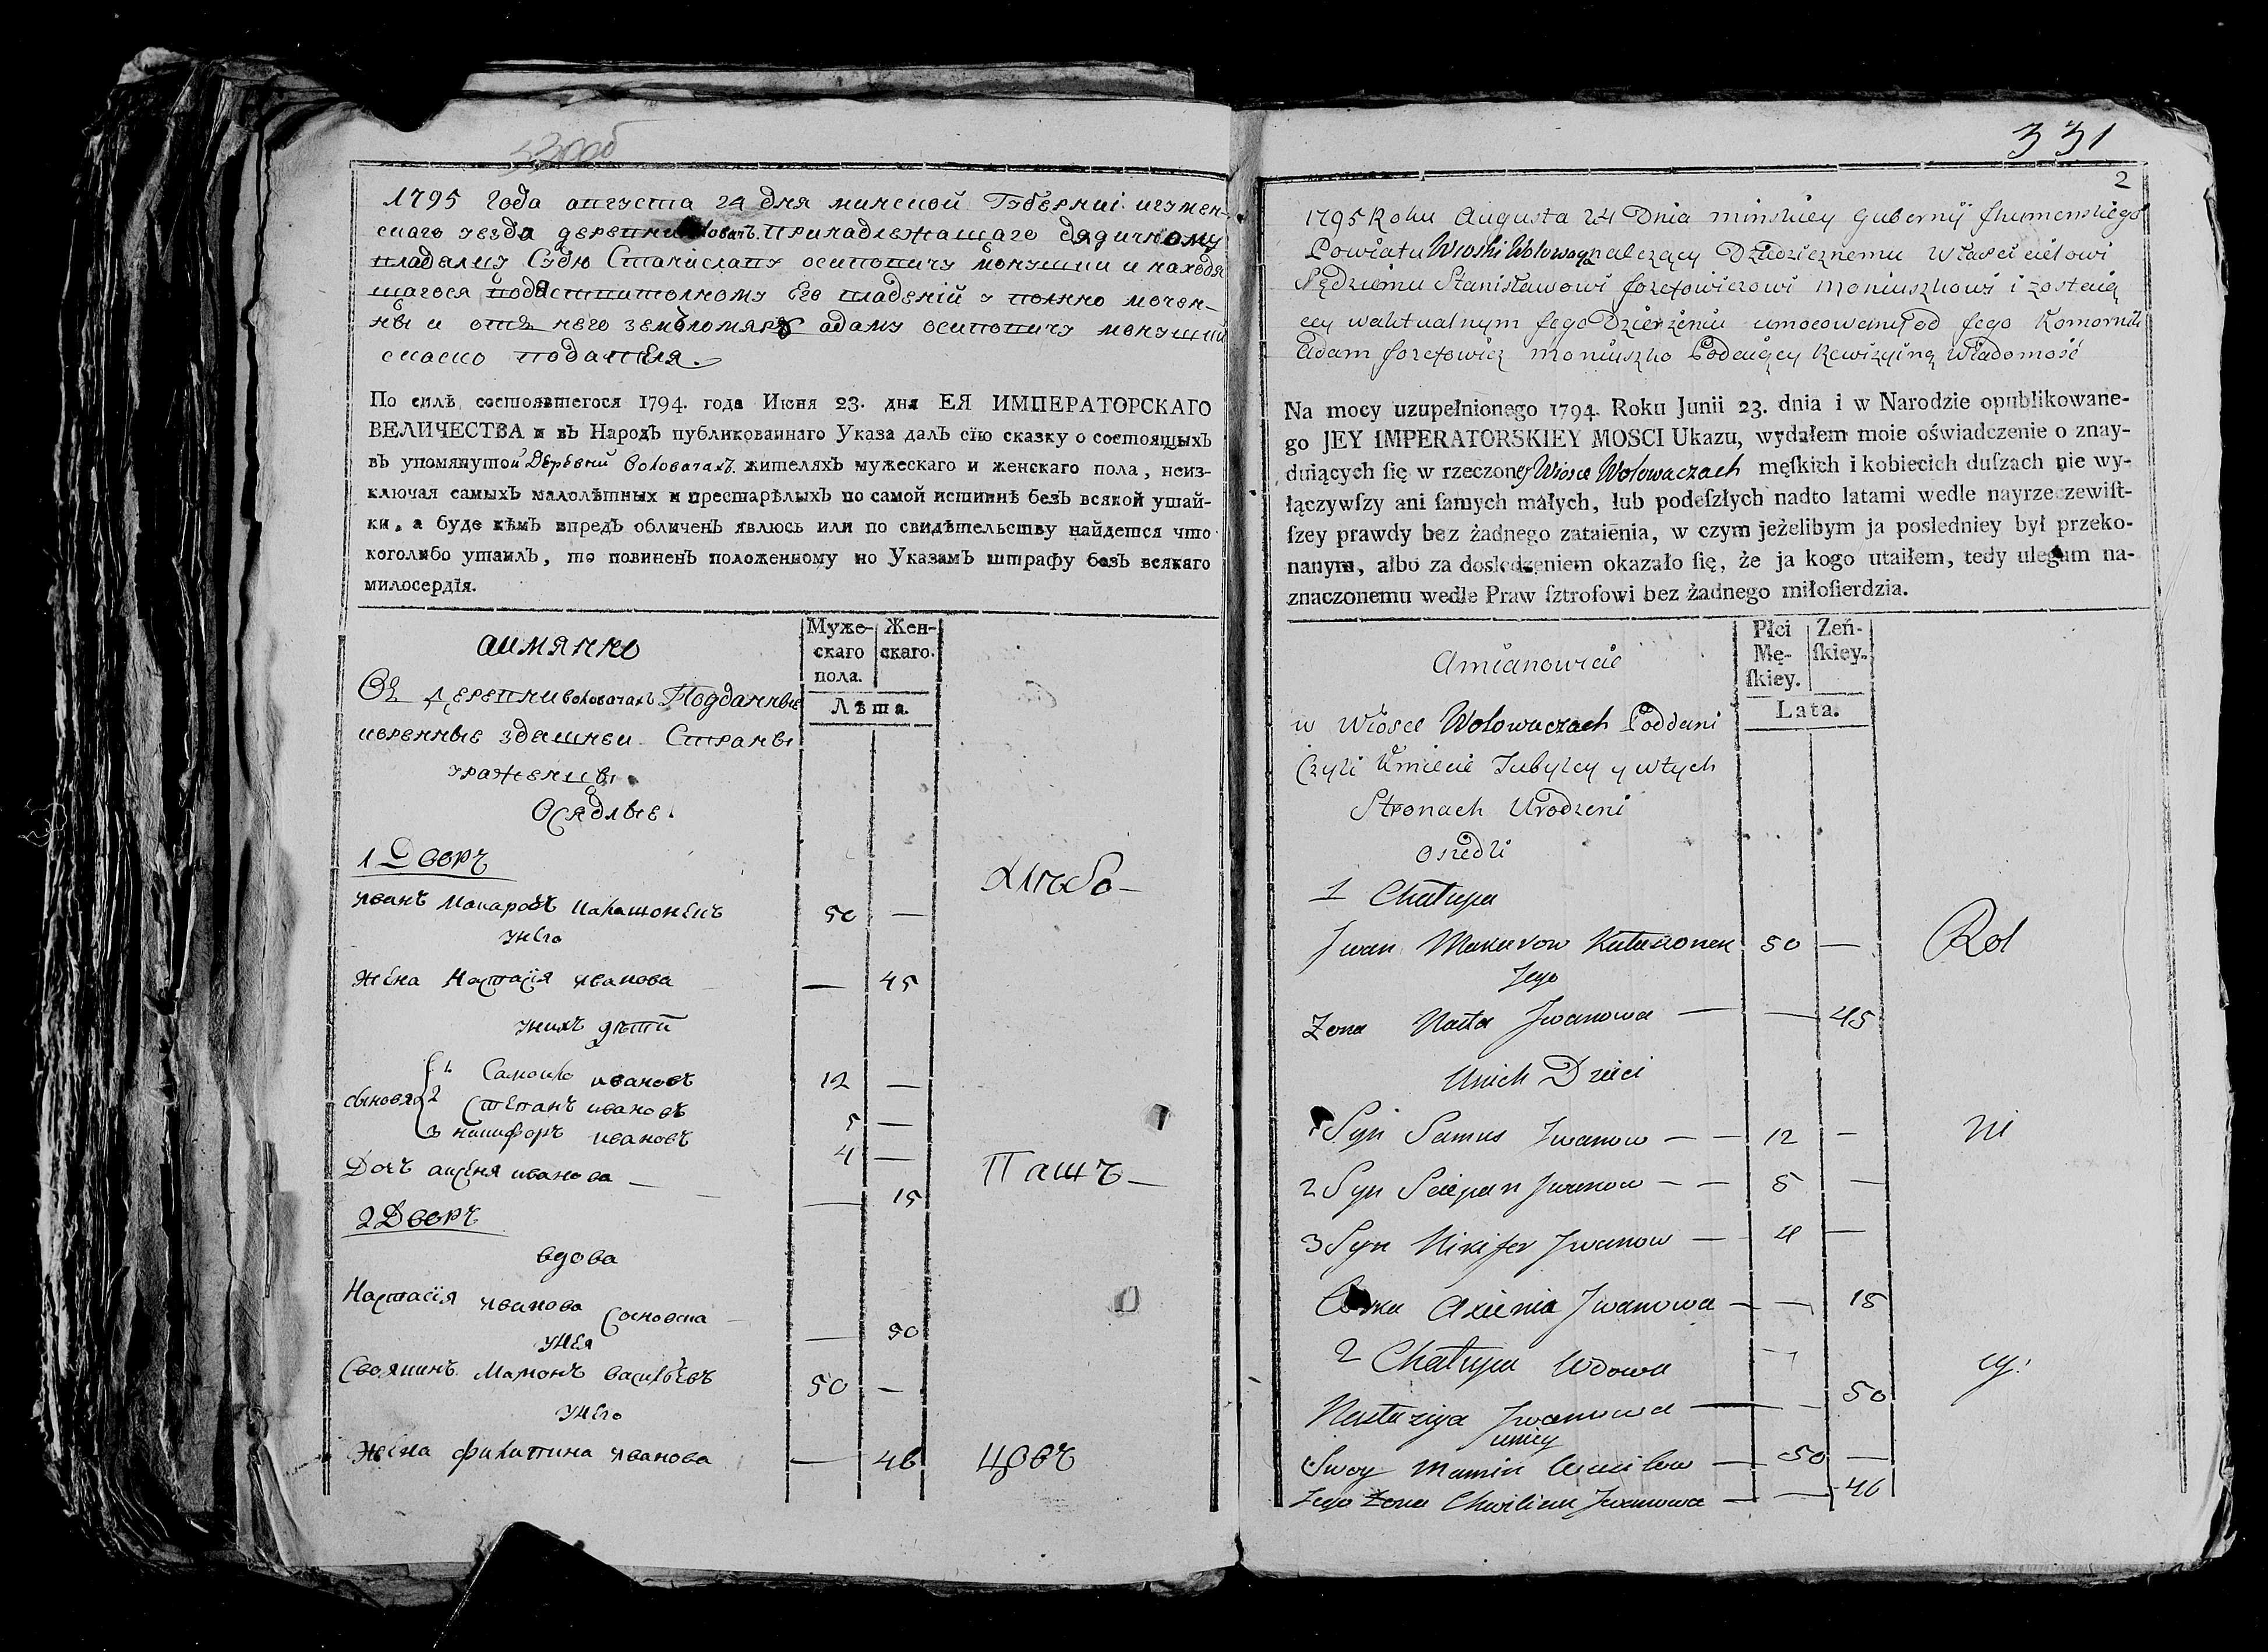 1795 года августа 24 дня минской Губерниі игумен-
скаго уезда деревни принадлежащаго дядичному
владелцу Судю Станиславу осиповичу монушки и находя
щагося его владений у полнно мочен-
ны и отъ него землемяръ адамъ осиповичъ монушки
сказкo подателя.
По силѣ состоявшегося 1794. года Июня 23. дня ЕЯ ИМПЕРАТОРСКАГО
ВЕЛИЧЕСТВА и вЪ НародЪ публикованнаго Указа далЪ сїю сказку о состоящыхЪ
вЪ упомянутой Деревни Воловачахъ жителяхЪ мужескаго и женскаго пола, неиз-
ключая самыхЪ малолѣтныхъ и престарѣлыхЪ по самой истиннѣ безЪ всякой утай-
ки, а буде кѣмЪ впредЪ обличенЪ явлюсь или по свидѣтельству найдется что
коголибо утаилЪ, то повиненЪ положенному по УказамЪ штрафу безЪ всякаго
милосердїя.
аимянно
Муже-
скаго
пола.
Жен-
скаго.
Лѣта.
Въ деревни воловачахъ Подданные
иоренные здашнеи Страны
уражѣнцы
Осядлые.
1 Дворъ
Хлѣбо-
Иванъ Макаровъ Калашонекъ 50 —
унего
Жена Настасія Иванова — 45
унихъ дѣти
сыновя 1 Самоило ивановъ 12 —
2 Степанъ ивановъ 5 —
3 никифоръ ивановъ 4 —
Дочъ аксеня иванова — — 15
Пашъ-
2 Дворъ
вдова
Настасія Иванова Сосновска — 50
унея
Своякинъ Мамонъ Васильевъ 50 —
унего
Жена филатина Иванова — 46
цовъ
331
2
1795 Roku Augusta 24 Dnia minskiey Gubernij Ihumenskiego
Powiatu Wioski Wolowacz nalezący Dziedzicznemu Właścicielowi
Sędziemu Stanisławowi Jozefowiczowi Moniuszkowi i zostaią
cey waktualnym Jego Dzierżeniu umocowany od Jego Komornik
Adam Jozefowicz Moniuszko Podaiący Rewizyiną Wiadomość
Na mocy uzupełnionego 1794. Roku Junii 23. dnia i w Narodzie opublikowane-
go JEY IMPERATORSKIEY MOSCI Ukazu, wydałem moie oświadczenie o znay-
duiących ſię w rzeczoney Wiosce Wolowaczach męſkich i kobiecich duſzach nie wy-
łączywſzy ani ſamych małych, lub podeſzłych nadto latami wedle nayrzeczewiſt-
ſzey prawdy bez żadnego zataienia, w czym jeżelibym ja posledniey był przeko-
nanym, albo za dosledzeniem okazało ſię, że ja kogo utaiłem, tedy ulegam na-
znaczonemu wedle Praw ſztrofowi bez żadnego miłoſierdzia.
Amianowicie
Płci
Mę-
ſkiey.
Zeń-
ſkiey.
Lata.
w Wiosce Wolowaczach Poddani
Czyli Kmiecie Tubylcy y wtych
Stronach Urodzeni
Osiedli
1 Chałupa
Jwan Makarow Kalaszonek 50 —
Rol
Jego
Zona Nasta Jwanowa — — 45
Unich Dzieci
1 Syn Samus Jwanow — — 12 —
ni
2 Syn Sciepan Jwanow — — 5 —
3 Syn Nikifer Jwanow — 4 —
Corka Axienia Jwanowa — — 15
2 Chałupa Wdowa
cy:
Nastazija Jwanowa — — 50
uniey
Swoy Mamin Wasilow — 50 —
Jego Zona Chwilicia Jwanowa — — 46